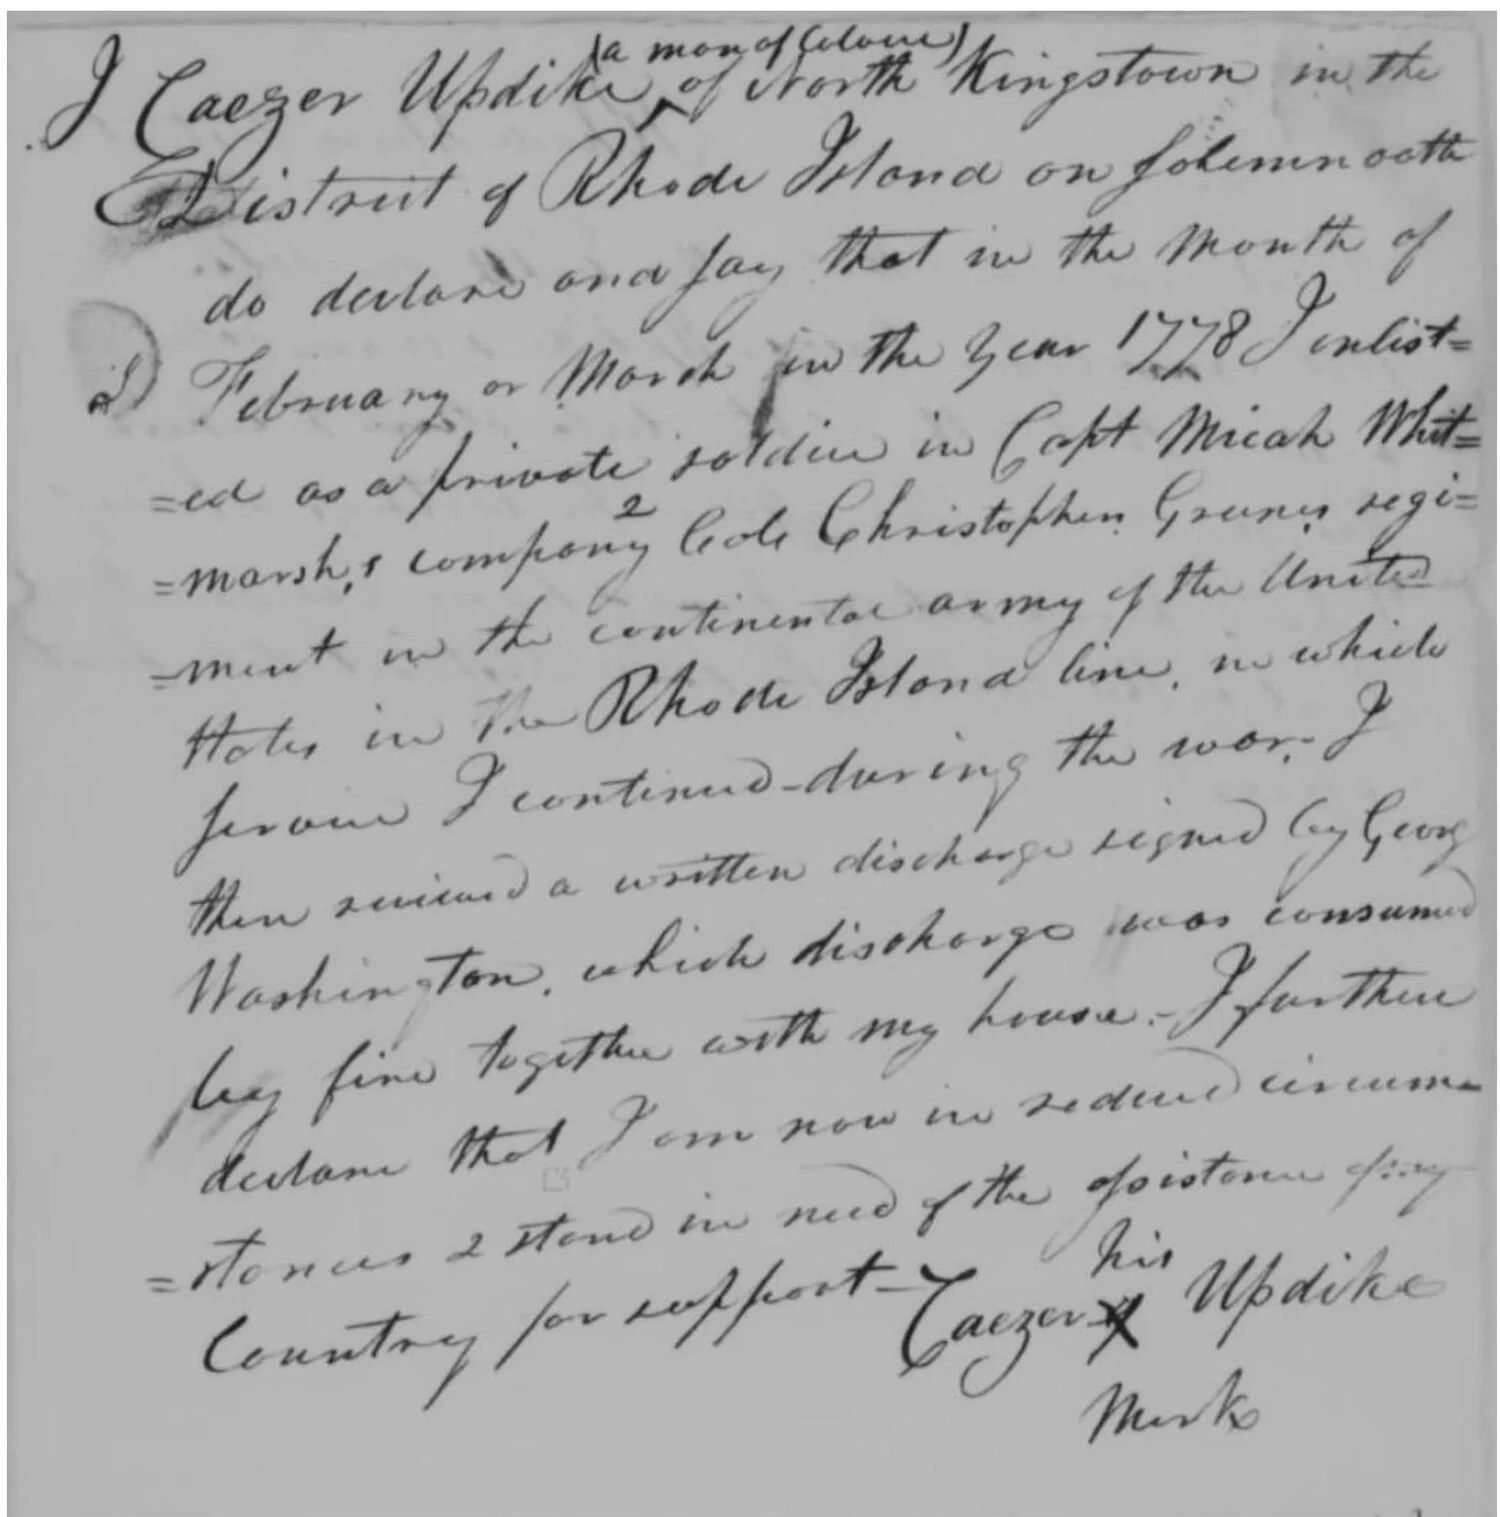 (a man of Colour)
I Caezer Updike ^ of North Kingstown in the
District of Rhode Island on solemn oath
do declare and say that in the month of
February or March in the year 1778 I enlist=
=ed as a private soldier in Capt Micah Whit=
=marsh,s company 2 Cole Christopher Greenes regi=
=ment in the continental army of the United
States in the Rhode Island line, in which
service I continued - during the war. I
then received a written discharge signed by Georg
Washington, which discharge was consumed
by fire together with my house. - I further
declare that I am now in reduced circum=
=stances & stand in need of the assistance of my
Country for support -
his
Caezer X Updike
Mark